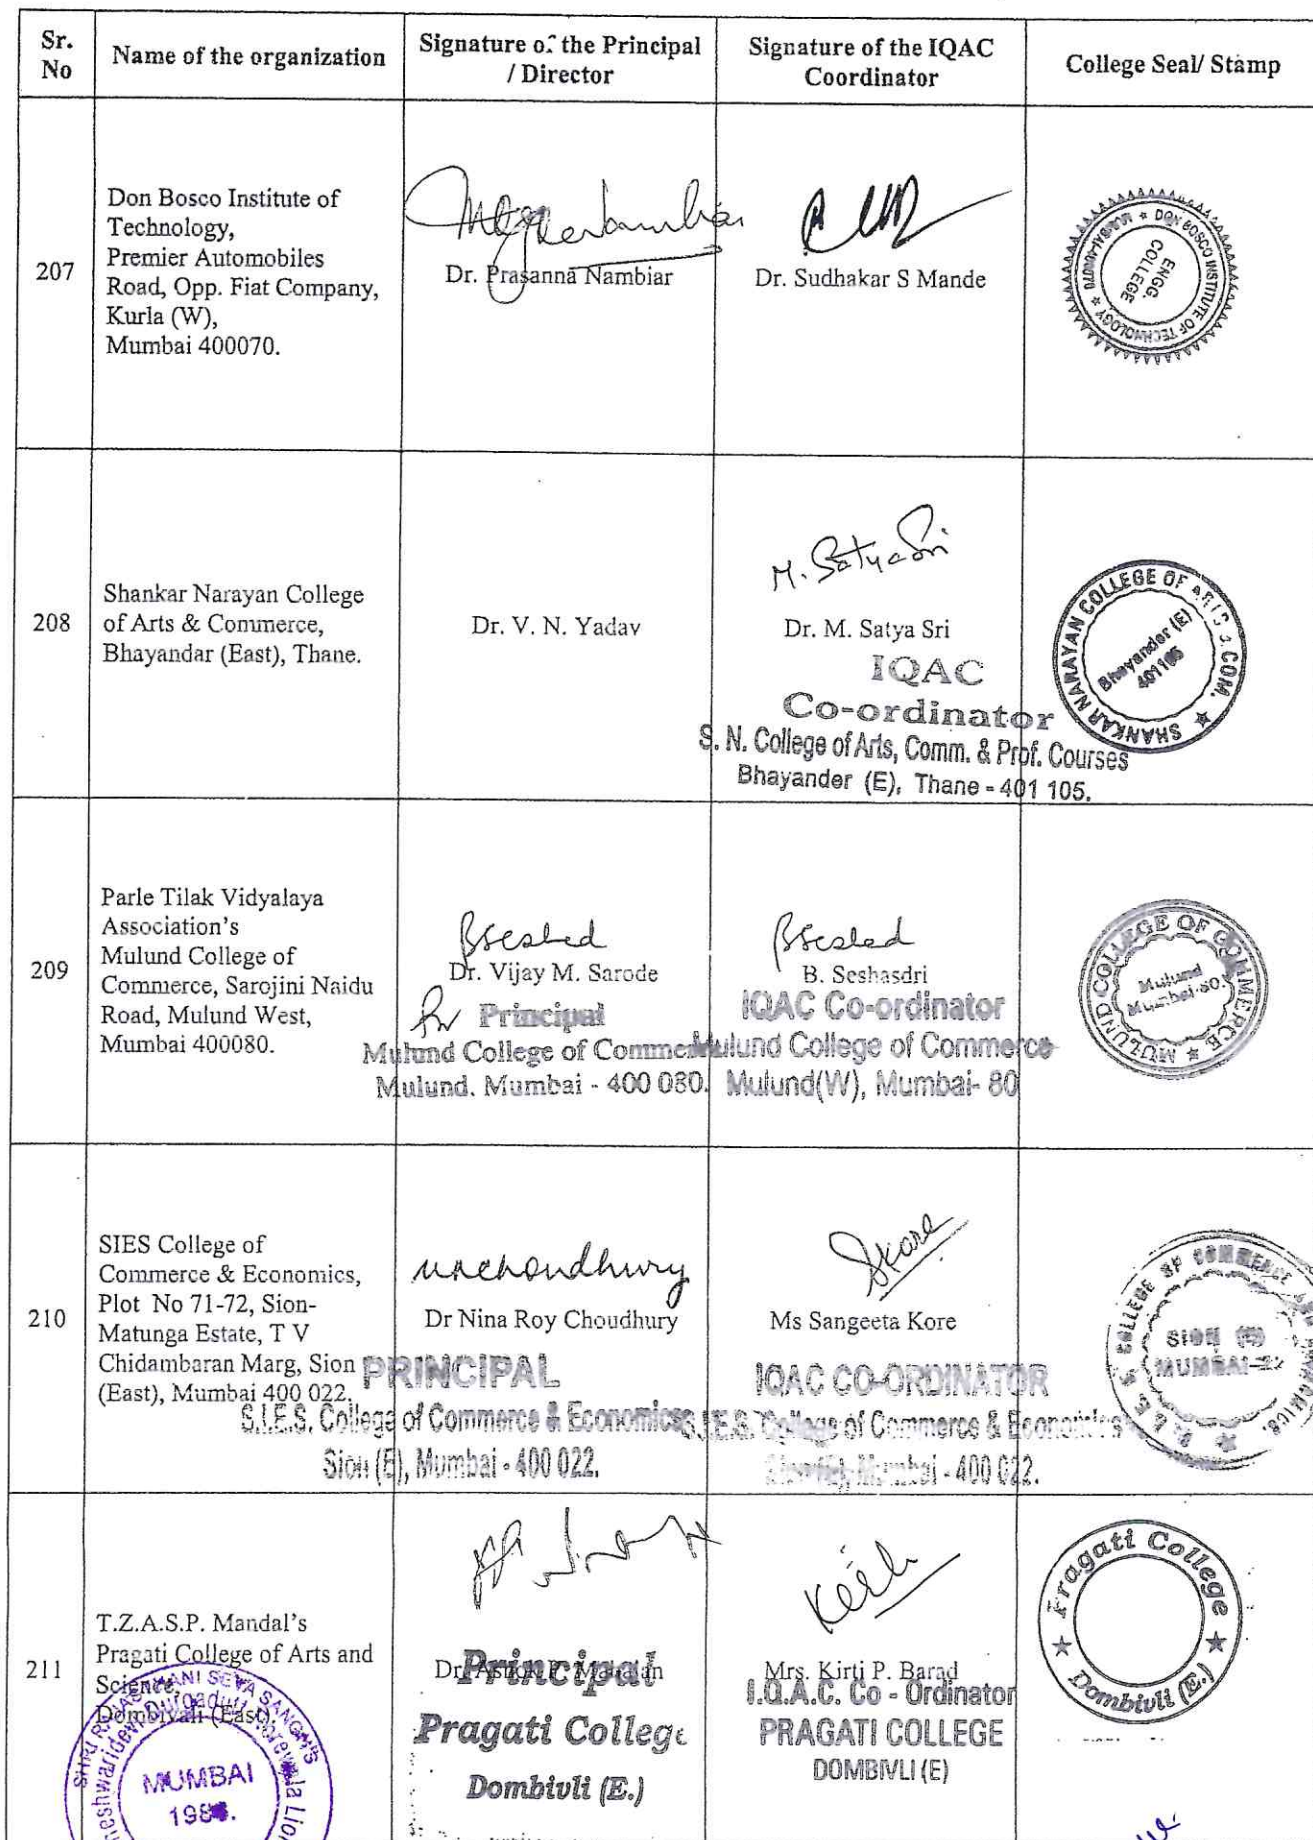 Sr. No
Name of the organization
Signature of the Principal / Director
Signature of the IQAC Coordinator
College Seal/ Stamp
207
Don Bosco Institute of
Technology,
Premier Automobiles
Road, Opp. Fiat Company,
Kurla (W),
Mumbai 400070.
Dr. Prasanna Nambiar
Dr. Sudhakar S Mande
DON BOSCO INSTITUTE OF TECHNOLOGY
ENGG.
COLLEGE
208
Shankar Narayan College
of Arts & Commerce,
Bhayandar (East), Thane.
Dr. V. N. Yadav
M. Satya Sri
Dr. M. Satya Sri
IQAC
Co-ordinator
S. N. College of Arts, Comm. & Prof. Courses
Bhayander (E), Thane - 401 105.
SHANKAR NARAYAN COLLEGE OF ARTS & COM.
Bhayander (E)
401105
209
Parle Tilak Vidyalaya
Association's
Mulund College of
Commerce, Sarojini Naidu
Road, Mulund West,
Mumbai 400080.
Dr. Vijay M. Sarode
Principal
Mulund College of Comme
Mulund. Mumbai - 400 080.
B. Seshasdri
IQAC Co-ordinator
Mulund College of Commerce
Mulund(W), Mumbai- 80
MULUND COLLEGE OF COMMERCE
Mulund
Mumbai-80.
210
SIES College of
Commerce & Economics,
Plot No 71-72, Sion-
Matunga Estate, T V
Chidambaran Marg, Sion
(East), Mumbai 400 022.
Dr Nina Roy Choudhury
PRINCIPAL
S.I.E.S. College of Commerce & Economics
Sion (E), Mumbai - 400 022.
Ms Sangeeta Kore
IQAC CO-ORDINATOR
S.I.E.S. College of Commerce & Economics
Sion (E), Mumbai - 400 022.
COLLEGE OF COMMERCE
SION (E)
MUMBAI-22
211
T.Z.A.S.P. Mandal's
Pragati College of Arts and
Science,
Dombivali (East)
Principal
Pragati College
Dombivli (E.)
Mrs. Kirti P. Barad
I.Q.A.C. Co - Ordinator
PRAGATI COLLEGE
DOMBIVLI (E)
Pragati College
Dombivli (E.)
MUMBAI